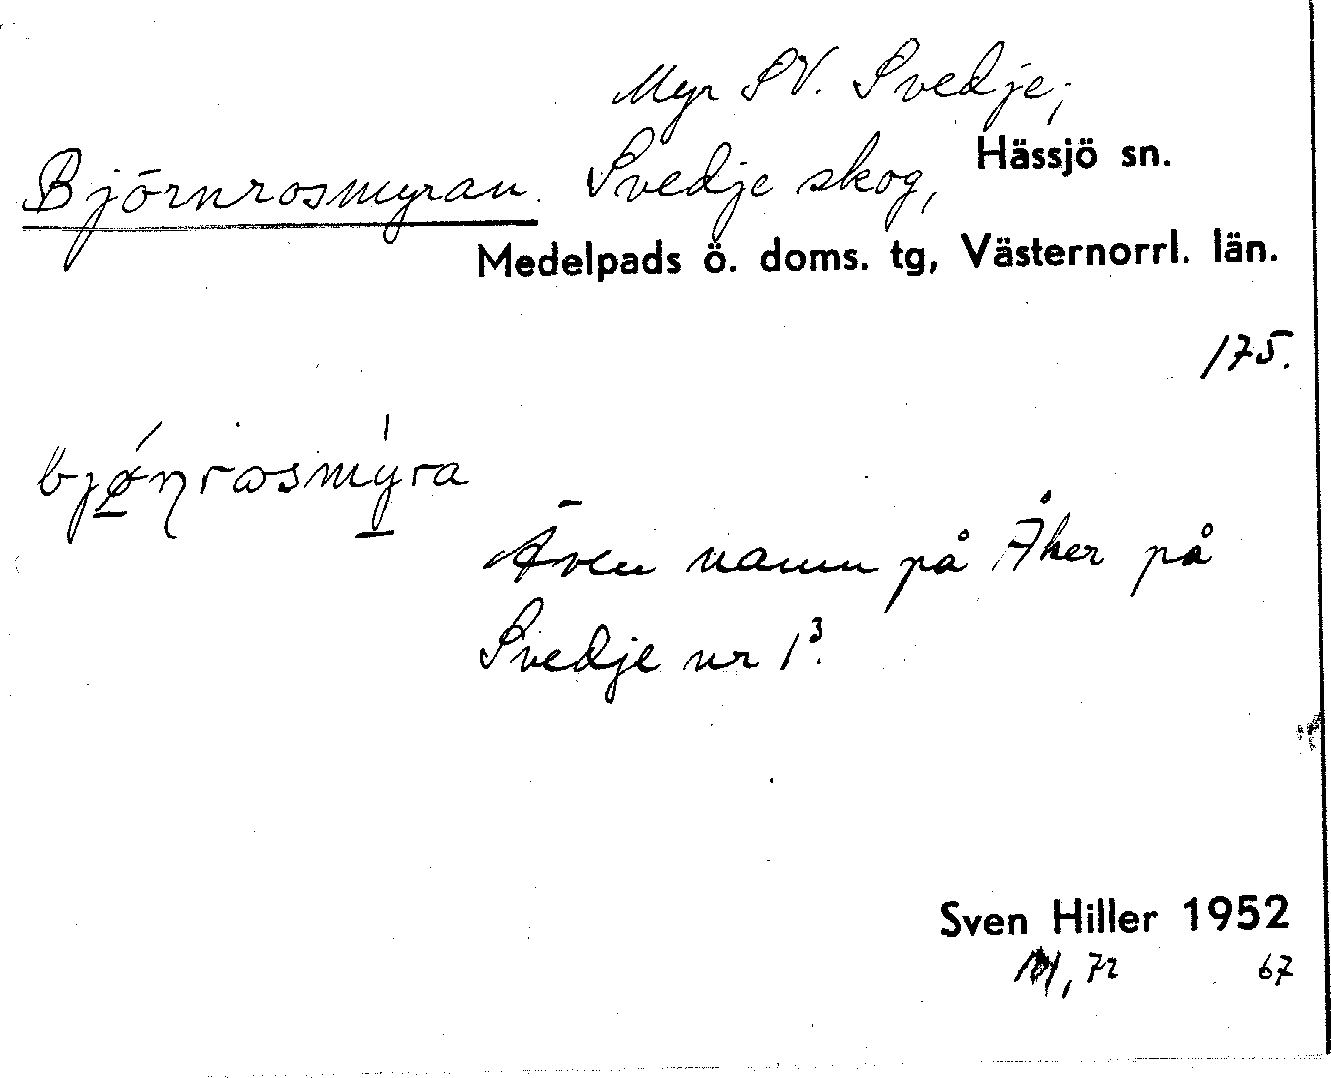 Myr SV. Svedje,
Björnrosmyran. Svedje skog, Hässjö sn.
Medelpads ö. doms. tg, Västernorrl. län.
175.
Även namn på Åker på
Svedje nr 1³.
Sven Hiller 1952
72 67